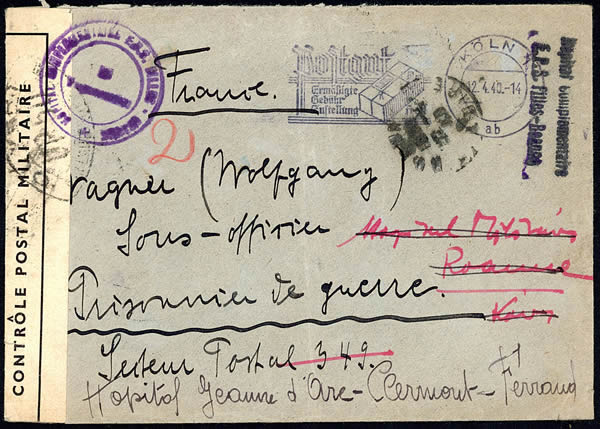 CONTRÔLE POSTAL MILITAIRE
Postgut
Ermäßigte
Gebühr
Zustellung
KÖLN
12.4.40.-14
ab
Hôpital Complémentaire
E.P.S. Filles-Roanne
France.
2
Wagner (Wolfgang)
Sous-officier
Hôpital Militaire
Roanne
Loire
Prisonnier de guerre.
Secteur Postal 349.
Hôpital Jeanne d'Arc-Clermont-Ferrand